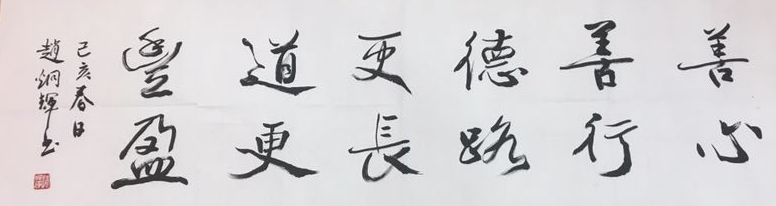 善心
善行
德路
更長
道更
豐盈
己亥春日
趙炯輝书